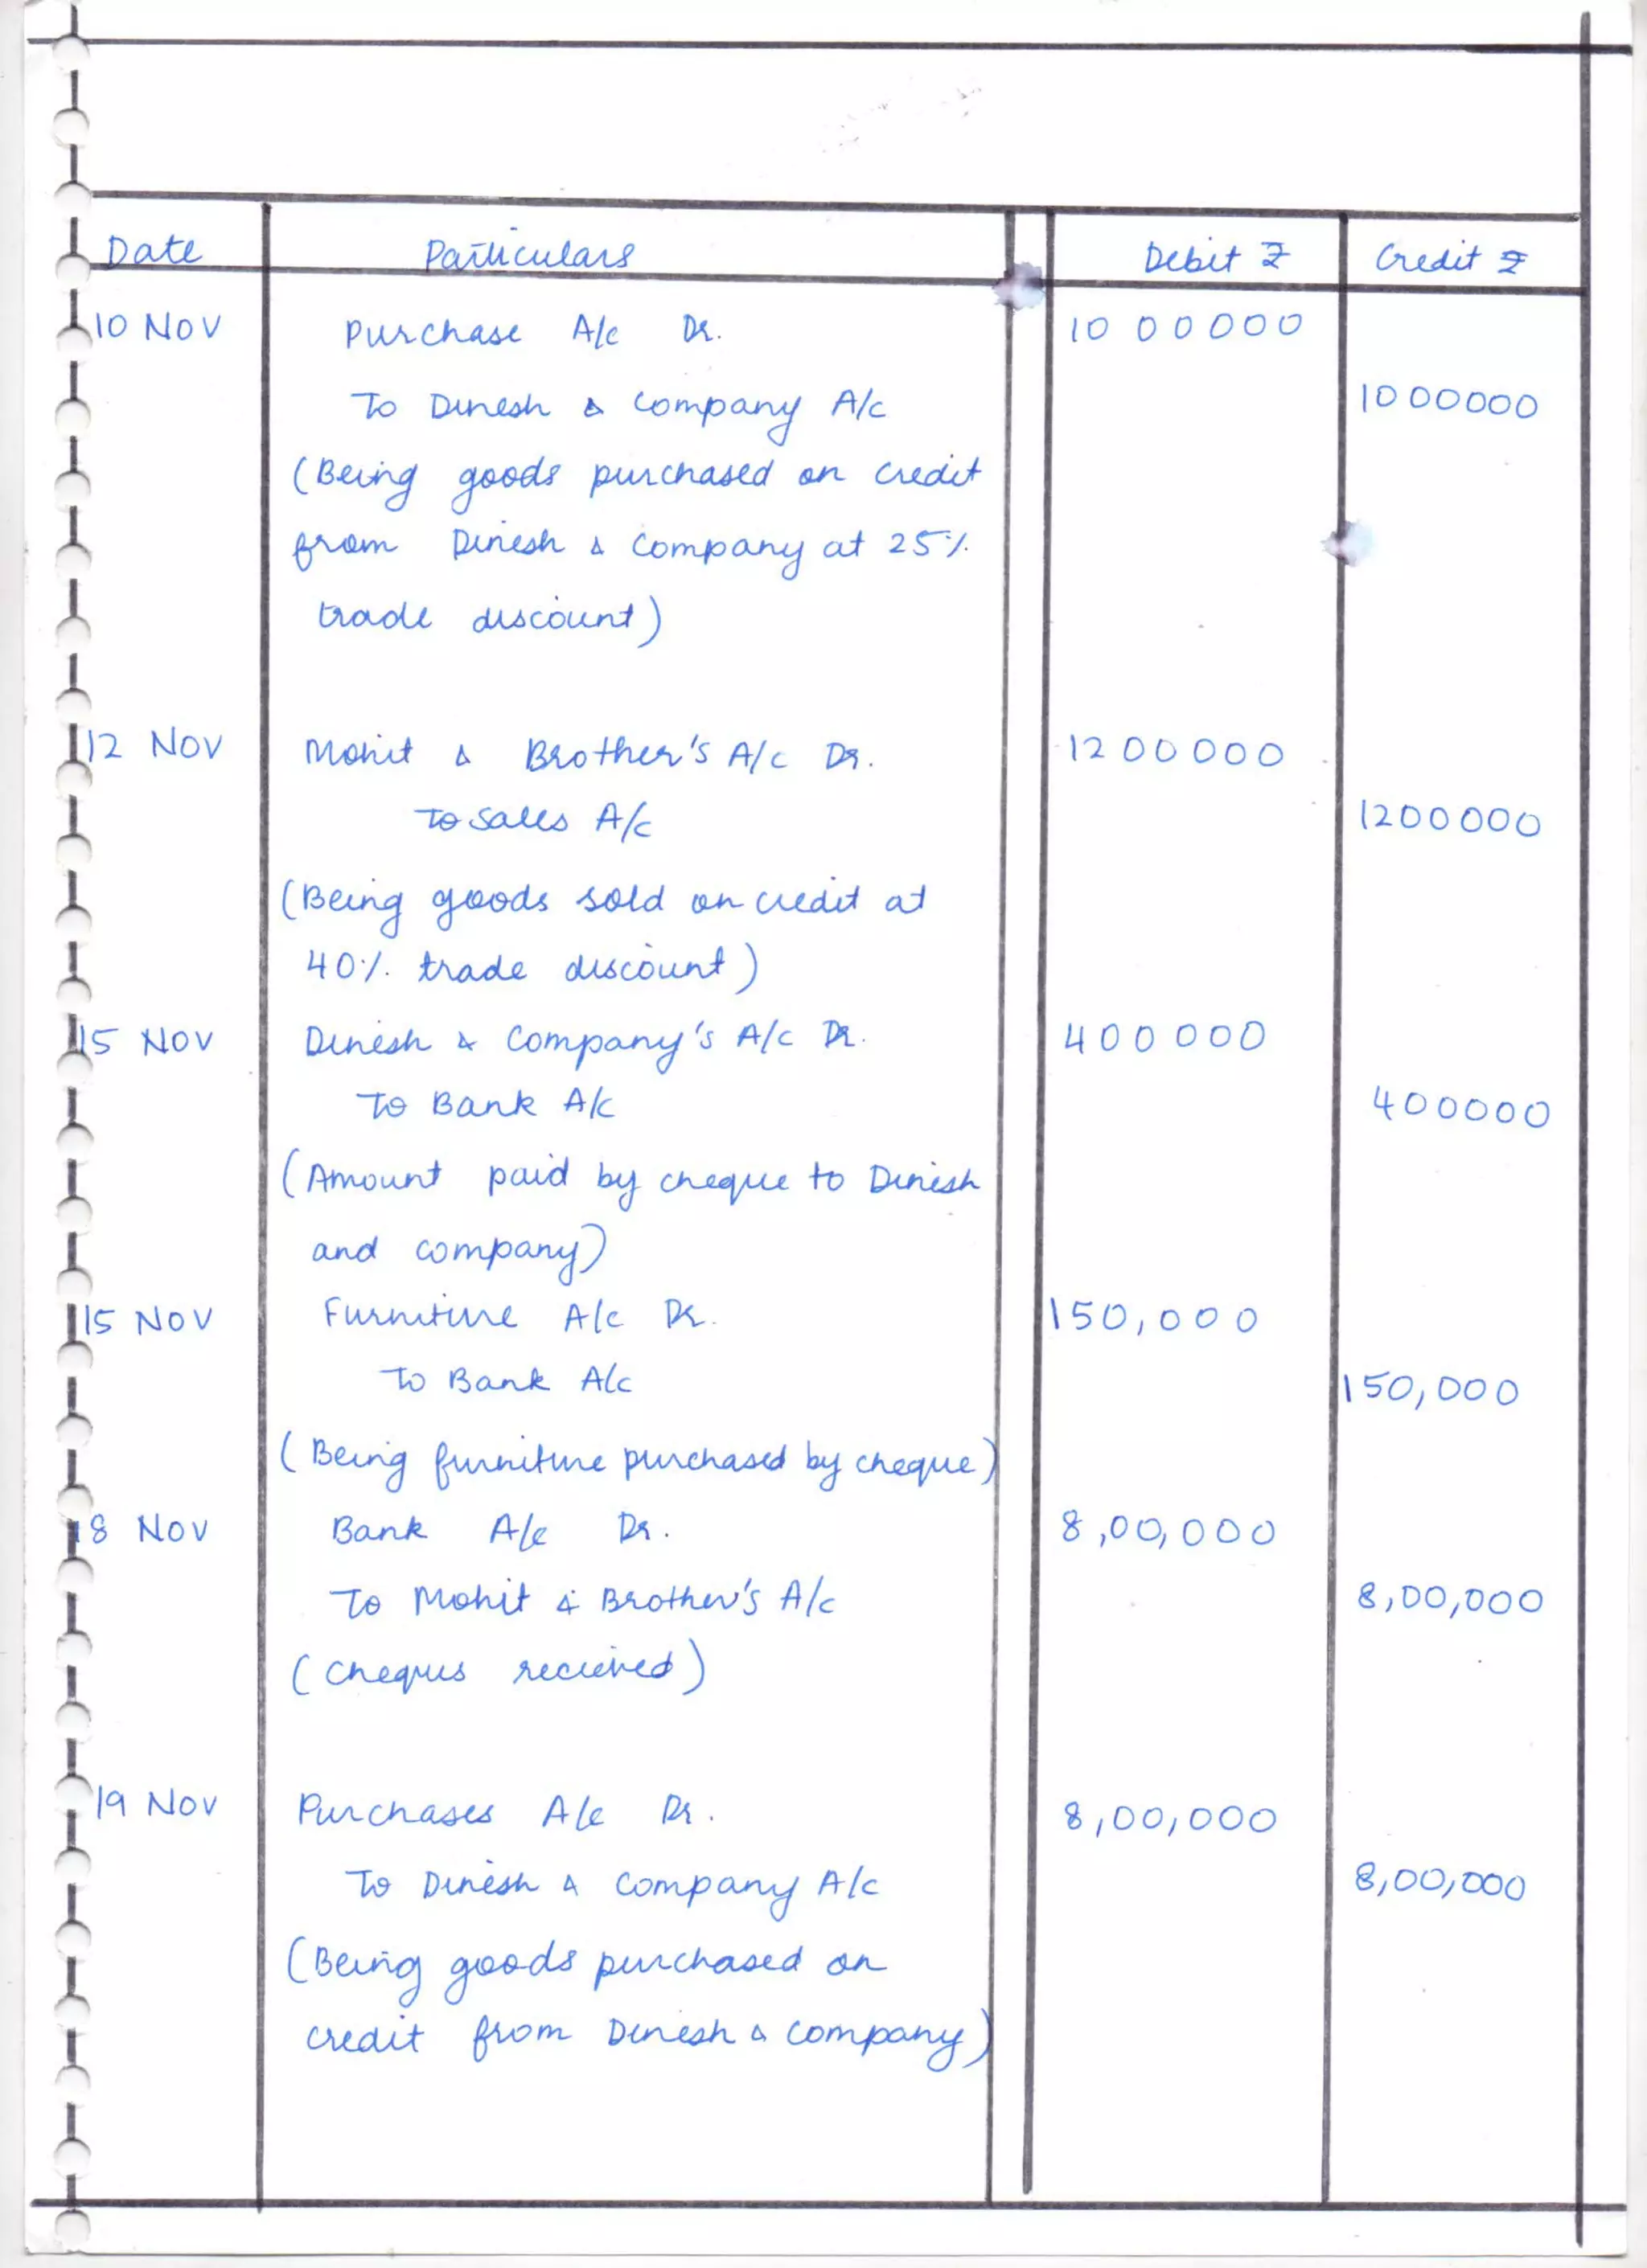 Date Particulars Debit ₹ Credit ₹
10 Nov Purchase A/c Dr. 10 00000
To Dinesh & Company A/c 1000000
(Being goods purchased on credit
from Dinesh & Company at 25%
trade discount)
12 Nov Mohit & Brother's A/c Dr. 1200000
To Sales A/c 1200000
(Being goods sold on credit at
40% trade discount)
15 Nov Dinesh & Company's A/c Dr. 400000
To Bank A/c 400000
(Amount paid by cheque to Dinesh
and company)
15 Nov Furniture A/c Dr. 150,000
To Bank A/c 150,000
(Being furniture purchased by cheque)
18 Nov Bank A/c Dr. 8,00,000
To Mohit & Brother's A/c 8,00,000
(Cheques recieved)
19 Nov Purchases A/c Dr. 8,00,000
To Dinesh & Company A/c 8,00,000
(Being goods purchased on
credit from Dinesh & Company)